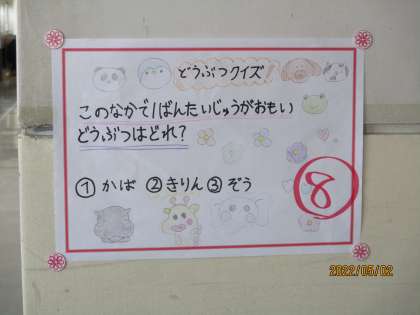 どうぶつクイズ
このなかで1ばんたいじゅうがおもい
どうぶつはどれ?
①かば ②きりん ③ぞう
8
2022/05/02